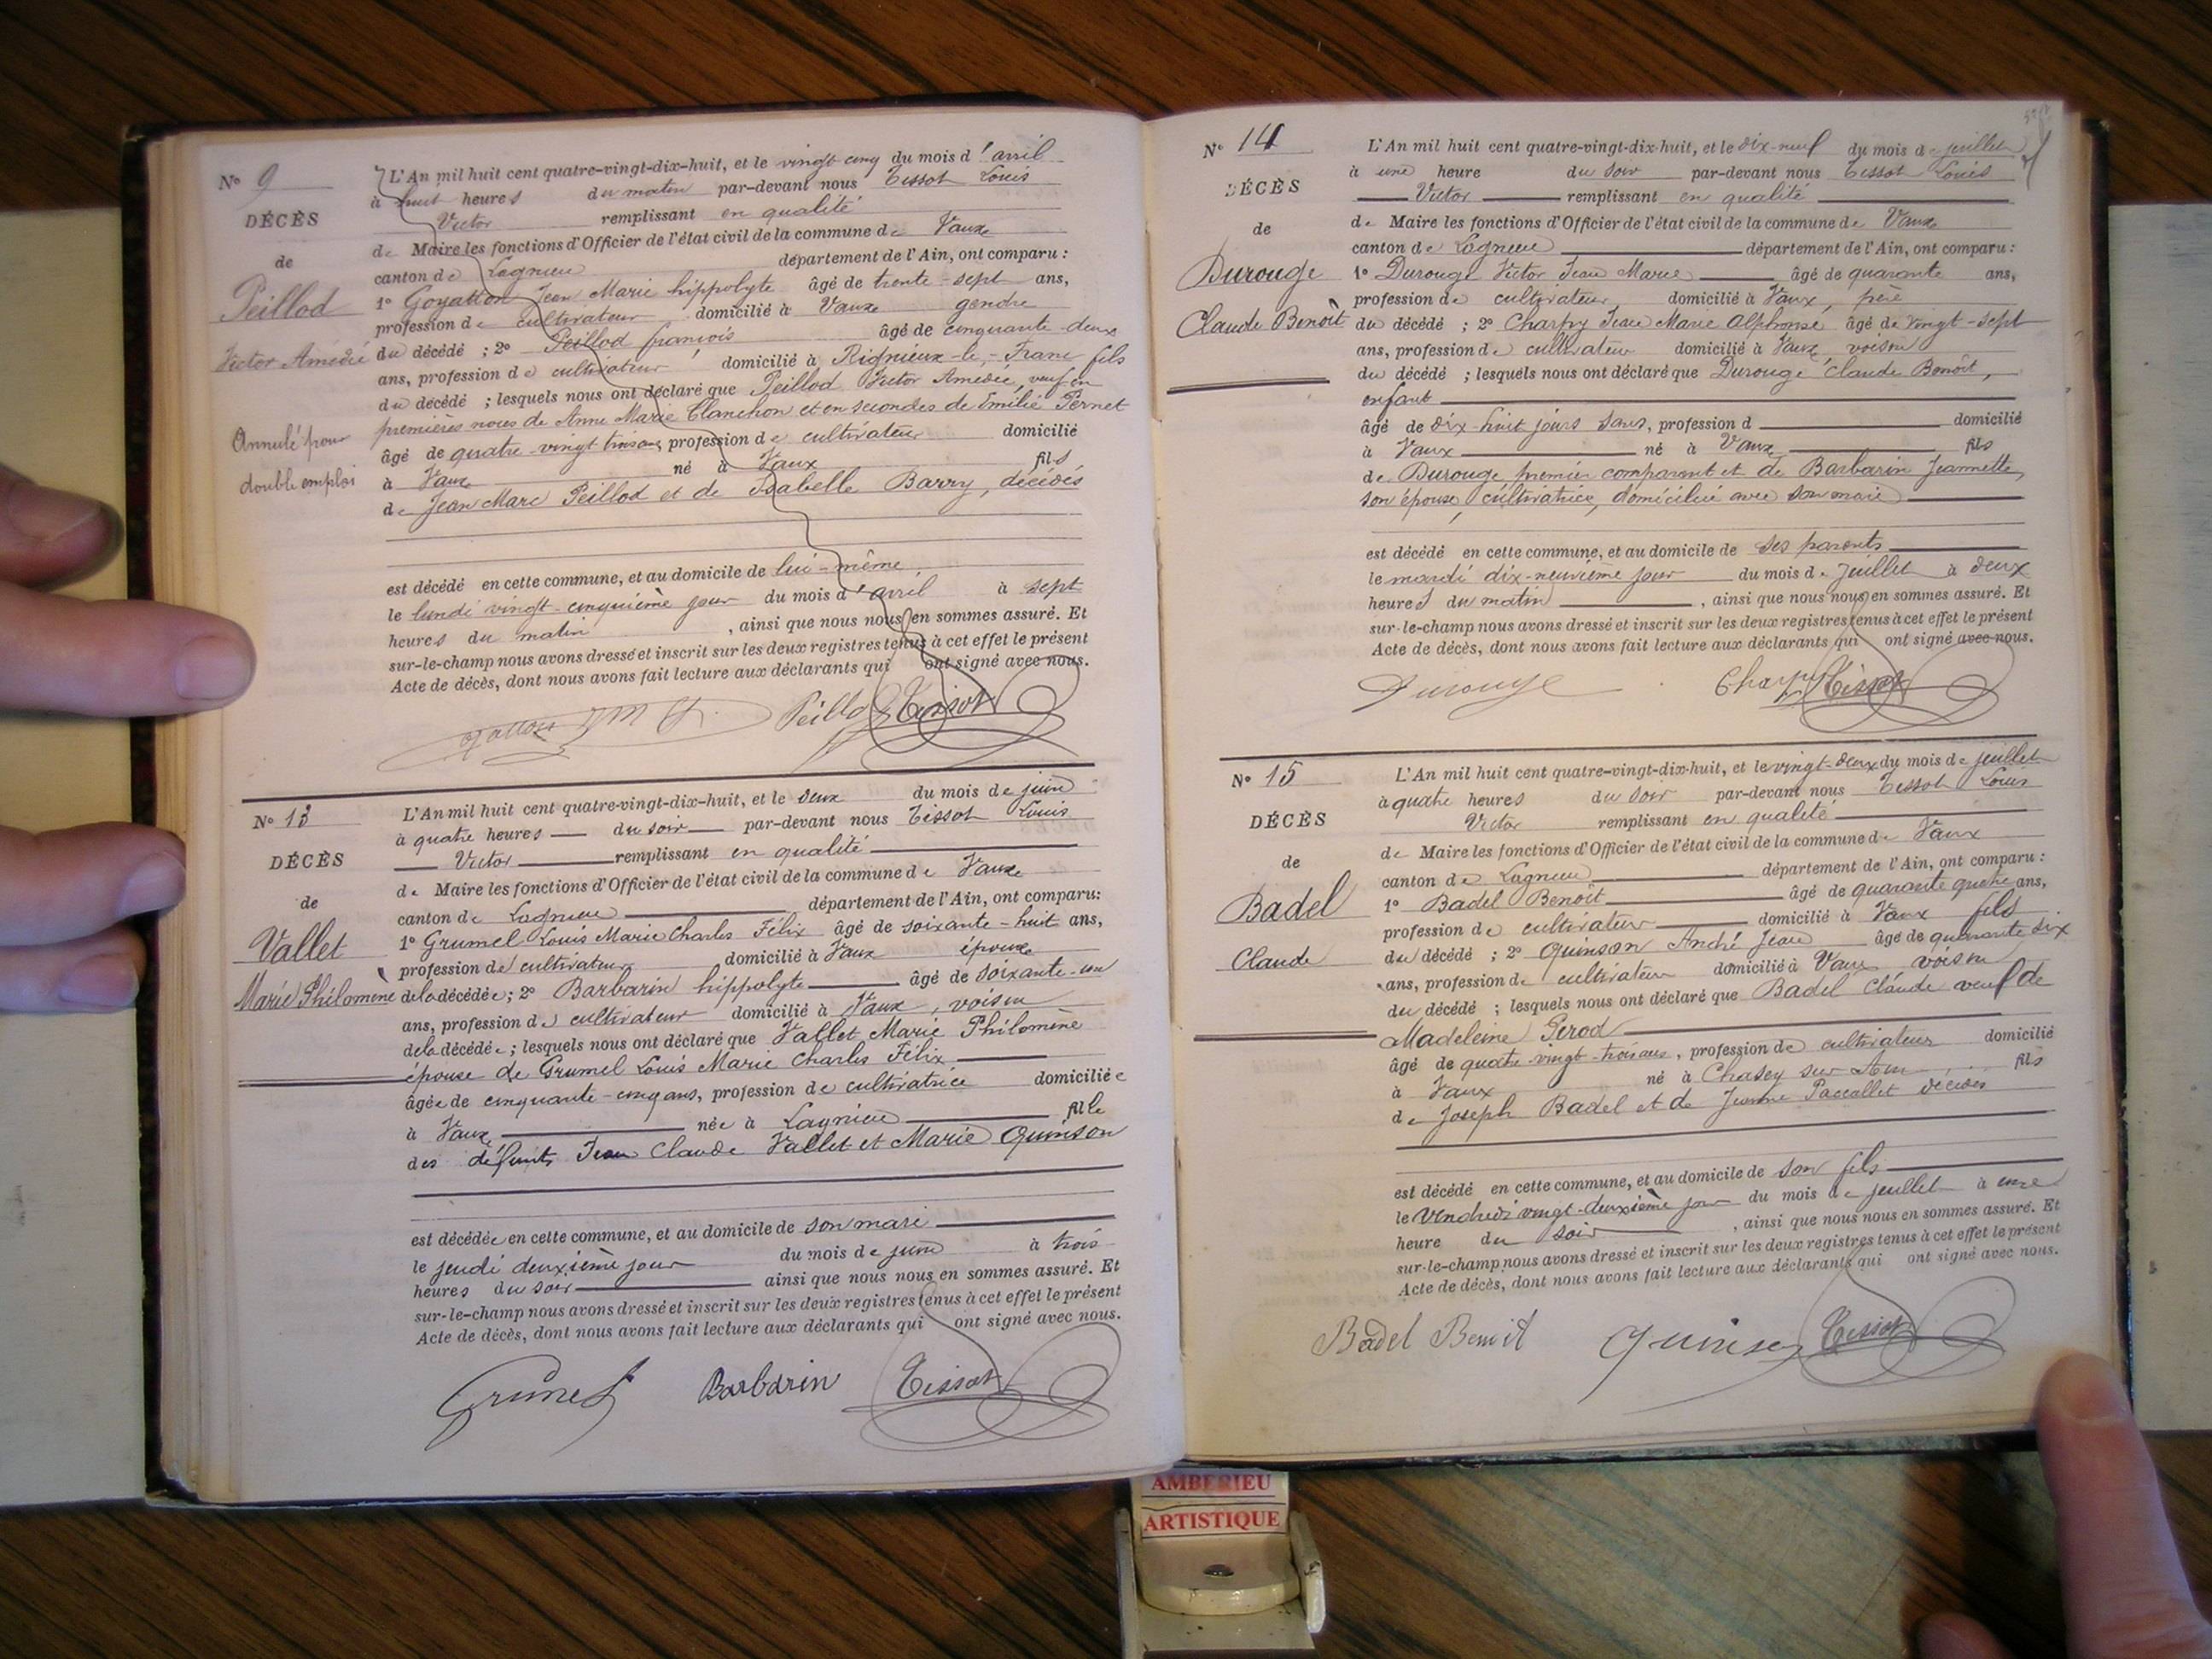 N° 9
DÉCÈS
de
Peillod
Victor Amédée
Annulé pour
double emploi
L'An mil huit cent quatre-vingt-dix-huit, et le vingt cinq du mois d'avril
à huit heures du matin par-devant nous Tissot Louis
Victor remplissant en qualité
de Maire les fonctions d'Officier de l'état civil de la commune de Vaux
canton de Lagnieu département de l'Ain, ont comparu :
1° Goyatton Jean Marie hippolyte âgé de trente-sept ans,
profession de cultivateur domicilié à Vaux gendre
du décédé ; 2° Peillod françois âgé de cinquante-deux
ans, profession de cultivateur domicilié à Rignieux-le-Franc fils
du décédé ; lesquels nous ont déclaré que Peillod Victor Amédée, veuf en
premières noces de Anne Marie Clanchon et en secondes de Emilie Pernet
âgé de quatre-vingt trois ans, profession de cultivateur domicilié
à Vaux né à Vaux fils
de Jean Marc Peillod et de Isabelle Barry, décédés
est décédé en cette commune, et au domicile de lui-même
le lundi vingt-cinquième jour du mois d'avril à sept
heures du matin, ainsi que nous nous en sommes assuré. Et
sur-le-champ nous avons dressé et inscrit sur les deux registres tenus à cet effet le présent
Acte de décès, dont nous avons fait lecture aux déclarants qui ont signé avec nous.
Peillod Tissot
N° 13
DÉCÈS
de
Vallet
Marie Philomène
L'An mil huit cent quatre-vingt-dix-huit, et le deux du mois de juin
à quatre heures du soir par-devant nous Tissot Louis
Victor remplissant en qualité
de Maire les fonctions d'Officier de l'état civil de la commune de Vaux
canton de Lagnieu département de l'Ain, ont comparu:
1° Grumel Louis Marie Charles Félix âgé de soixante-huit ans,
profession de cultivateur domicilié à Vaux époux
de la décédée; 2° Barbarin hippolyte âgé de soixante-un
ans, profession de cultivateur domicilié à Vaux, voisin
de la décédée; lesquels nous ont déclaré que Vallet Marie Philomène
épouse de Grumel Louis Marie Charles Félix
âgée de cinquante-cinq ans, profession de cultivatrice domiciliée
à Vaux née à Lagnieu fille
des défunts Jean Claude Vallet et Marie Quinson
est décédée en cette commune, et au domicile de son mari
le jeudi deuxième jour du mois de juin à trois
heures du soir ainsi que nous nous en sommes assuré. Et
sur-le-champ nous avons dressé et inscrit sur les deux registres tenus à cet effet le présent
Acte de décès, dont nous avons fait lecture aux déclarants qui ont signé avec nous.
Grumel Barbarin Tissot
N° 14
DÉCÈS
de
Durouge
Claude Benoît
L'An mil huit cent quatre-vingt-dix-huit, et le dix-neuf du mois de juillet
à une heure du soir par-devant nous Tissot Louis
Victor remplissant en qualité
de Maire les fonctions d'Officier de l'état civil de la commune de Vaux
canton de Lagnieu département de l'Ain, ont comparu :
1° Durouge Victor Jean Marie âgé de quarante ans,
profession de cultivateur domicilié à Vaux, père
du décédé ; 2° Charpy Jean Marie Alphonse âgé de vingt-sept
ans, profession de cultivateur domicilié à Vaux, voisin
du décédé ; lesquels nous ont déclaré que Durouge Claude Benoît,
enfant
âgé de dix-huit jours sans, profession d domicilié
à Vaux né à Vaux fils
de Durouge, premier comparant et de Barbarin Jeannette,
son épouse, cultivatrice, domiciliée avec son mari
est décédé en cette commune, et au domicile de ses parents
le mardi dix-neuvième jour du mois de juillet à deux
heures du matin, ainsi que nous nous en sommes assuré. Et
sur-le-champ nous avons dressé et inscrit sur les deux registres tenus à cet effet le présent
Acte de décès, dont nous avons fait lecture aux déclarants qui ont signé avec nous.
Durouge Charpy Tissot
N° 15
DÉCÈS
de
Badel
Claude
L'An mil huit cent quatre-vingt-dix-huit, et le vingt-deux du mois de juillet
à quatre heures du soir par-devant nous Tissot Louis
Victor remplissant en qualité
de Maire les fonctions d'Officier de l'état civil de la commune de Vaux
canton de Lagnieu département de l'Ain, ont comparu :
1° Badel Benoît âgé de quarante quatre ans,
profession de cultivateur domicilié à Vaux fils
du décédé ; 2° Quinson André Jean âgé de quarante six
ans, profession de cultivateur domicilié à Vaux voisin
du décédé ; lesquels nous ont déclaré que Badel Claude veuf de
Madeleine Perod
âgé de quatre-vingt-trois ans, profession de cultivateur domicilié
à Vaux né à Chasey sur Ain fils
de Joseph Badel et de Jeanne Paccallet décédés
est décédé en cette commune, et au domicile de son fils
le vendredi vingt-deuxième jour du mois de juillet à une
heure du soir, ainsi que nous nous en sommes assuré. Et
sur-le-champ nous avons dressé et inscrit sur les deux registres tenus à cet effet le présent
Acte de décès, dont nous avons fait lecture aux déclarants qui ont signé avec nous.
Badel Benoit Quinson Tissot
AMBERIEU
ARTISTIQUE